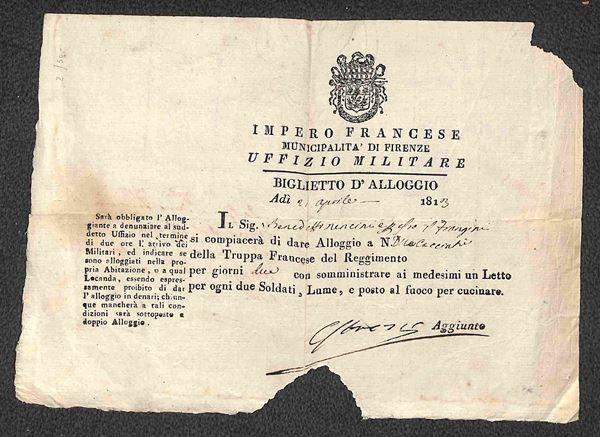 2/50-
IMPERO FRANCESE
MUNICIPALITA' DI FIRENZE
UFFIZIO MILITARE
BIGLIETTO D'ALLOGGIO
Adì 21 aprile 1813
Sarà obbligato l'Allog-
giante a denunziare al sud-
detto Uffizio nel termine
di due ore l'arrivo dei
Militari, ed indicare se
sono alloggiati nella pro-
pria Abitazione, o a qual
Locanda, essendo espres-
samente proibito di dar
l'alloggio in denari; chiun-
que mancherà a tali con-
dizioni sarà sottoposto a
doppio Alloggio.
IL Sig. Benedetto
si compiacerà di dare Alloggio a N.
della Truppa Francese del Reggimento
per giorni due con somministrare ai medesimi un Letto
per ogni due Soldati, Lume, e posto al fuoco per cucinare.
Aggiunto